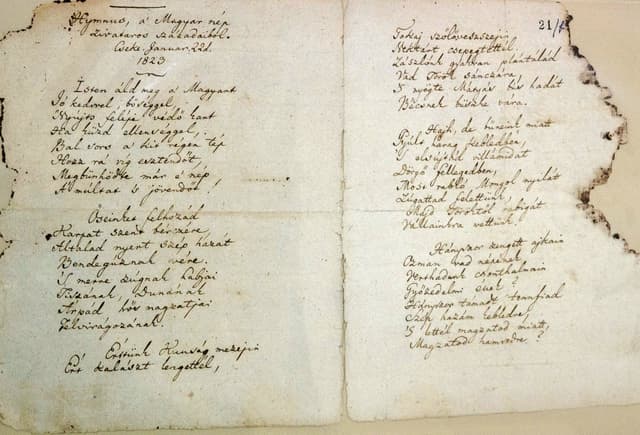 Hymnus, a' Magyar nép
zivataros századaiból.
Cseke Januar. 22d.
1823
Isten áldd meg a Magyart
Jó kedvvel, bőséggel,
Nyújts feléje védő kart
Ha küzd ellenséggel,
Bal sors a kit régen tép
Hozz rá víg esztendőt,
Megbűnhödte már e' nép
A' múltat 's jövendőt!
Őseinket felhozád
Kárpát szent bérczére,
Általad nyert szép hazát
Bendegúznak vére.
'S merre zúgnak habjai
Tiszának, Dunának
Árpád hős magzatjai
Felvirágozának.
Értünk Kunság mezejin
Ért kalászt lengettél,
21/
Tokaj szőlővesszejin
Nektárt csepegtettél.
Zászlónk gyakran plántálád
Vad Török sánczára,
'S nyögte Mátyás bús hadát
Bécsnek büszke vára.
Hajh, de bűneink miatt
Gyúlt harag kebledben,
'S elsújtád villámidat
Dörgő fellegedben,
Most rabló Mongol nyilát
Zúgattad felettünk,
Majd Töröktől rabigát
Vállainkra vettünk.
Hányszor zengett ajkain
Ozman vad népének,
Verthadunk csonthalmain
Győzedelmi ének!
Hányszor támadt tennfiad
Szép hazám kebledre,
'S lettél magzatod miatt,
Magzatod hamvvedre?